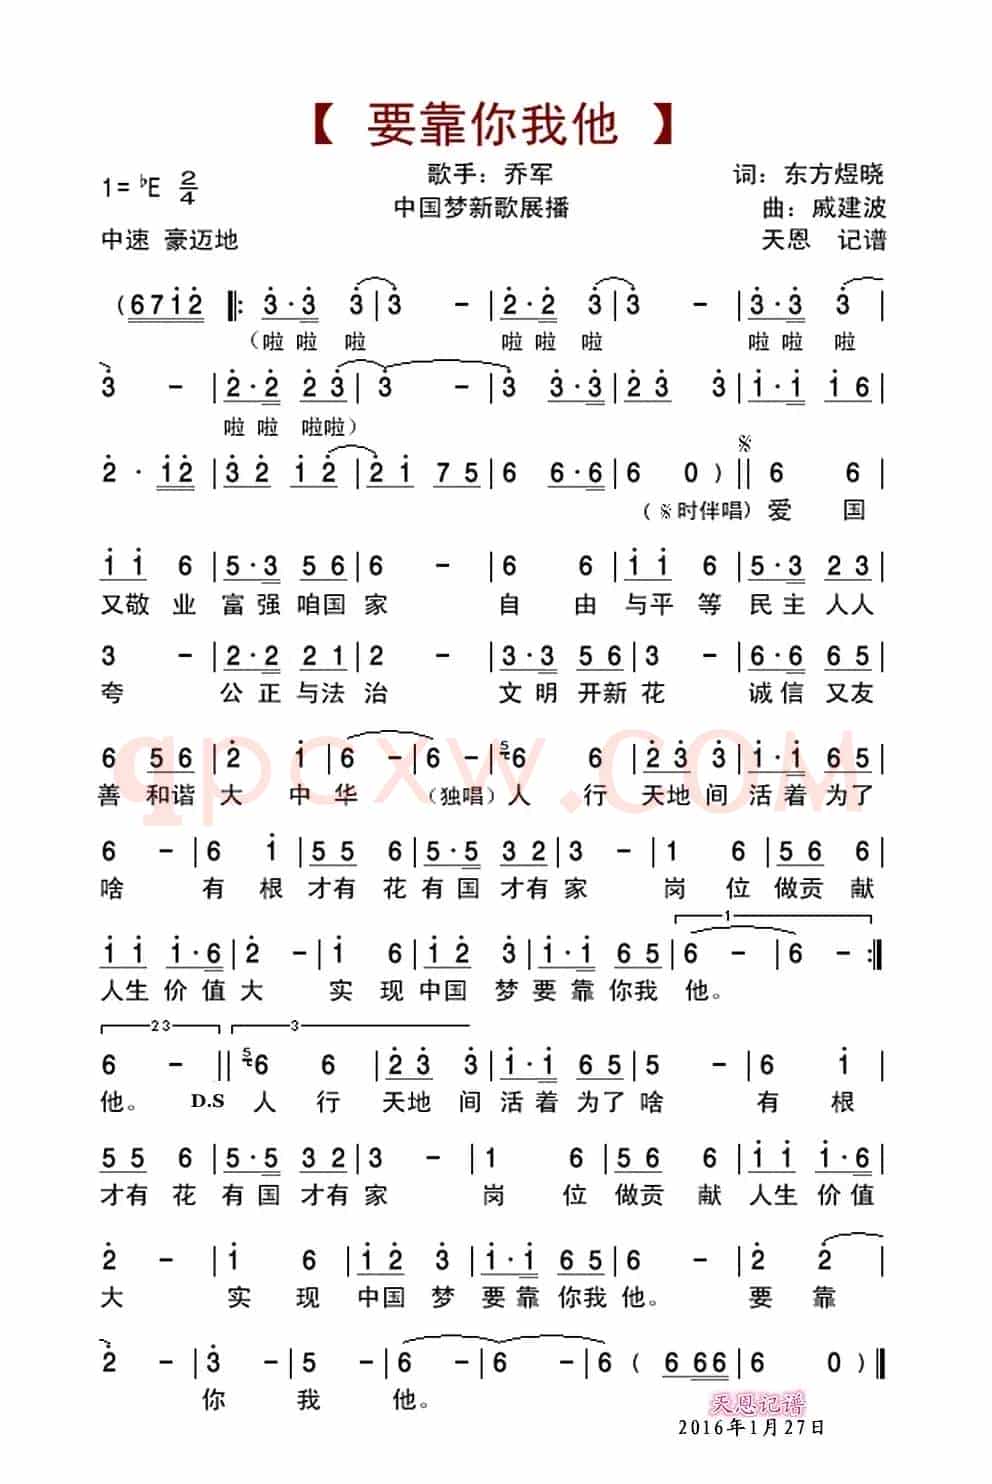 【 要靠你我他 】
1=♭E 2/4
歌手：乔军
词：东方煜晓
中国梦新歌展播
曲：戚建波
中速 豪迈地
天恩 记谱
(671̇2̇ ‖: 3̇·3̇ 3̇ | 3̇ - | 2̇·2̇ 3̇ | 3̇ - | 3̇·3̇ 3̇ |
（啦 啦 啦 啦 啦 啦 啦 啦 啦
3̇ - | 2̇·2̇ 2̇3̇ | 3̇ - | 3̇ 3̇·3̇ | 2̇3̇ 3̇ | 1̇·1̇ 1̇6 |
啦 啦 啦啦）
2̇· 1̇2̇ | 3̇2̇ 1̇2̇ | 2̇1̇ 75 | 6 6·6 | 6 0 ) ‖ 𝄋 6 6 |
(𝄋时伴唱) 爱 国
1̇1̇ 6 | 5·3 56 | 6 - | 6 6 | 1̇1̇ 6 | 5·3 23 |
又敬 业 富 强 咱国 家 自 由 与平 等 民 主 人人
3 - | 2·2 21 | 2 - | 3·3 56 | 3 - | 6·6 65 |
夸 公 正 与法 治 文 明 开新 花 诚 信 又友
6 56 | 2̇ 1̇ | 6 - | 6 - | 5 6 6 | 2̇3̇ 3̇ | 1̇·1̇ 65 |
善 和谐 大 中 华 （独唱）人 行 天地 间 活 着 为了
qpcxw.COM
6 - | 6 1̇ | 55 6 | 5·5 32 | 3 - | 1 6 | 56 6 |
啥 有 根 才有 花 有 国 才有 家 岗 位 做贡 献
1
1̇1̇ 1̇·6 | 2̇ - | 1̇ 6 | 1̇2̇ 3̇ | 1̇·1̇ 65 | 6 - | 6 - :‖
人生 价 值 大 实 现 中国 梦 要 靠 你我 他。
23 3
6 - ‖ 5 6 6 | 2̇3̇ 3̇ | 1̇·1̇ 65 | 5 - | 6 1̇ |
他。 D.S 人 行 天地 间 活 着 为了 啥 有 根
55 6 | 5·5 32 | 3 - | 1 6 | 56 6 | 1̇1̇ 1̇·6 |
才有 花 有 国 才有 家 岗 位 做贡 献 人生 价 值
2̇ - | 1̇ 6 | 1̇2̇ 3̇ | 1̇·1̇ 65 | 6 - | 2̇ 2̇ |
大 实 现 中国 梦 要 靠 你我 他。 要 靠
2̇ - | 3̇ - | 5 - | 6 - | 6 - | 6 ( 6 66 | 6 0 ) ‖
你 我 他。
天恩记谱
2016年1月27日